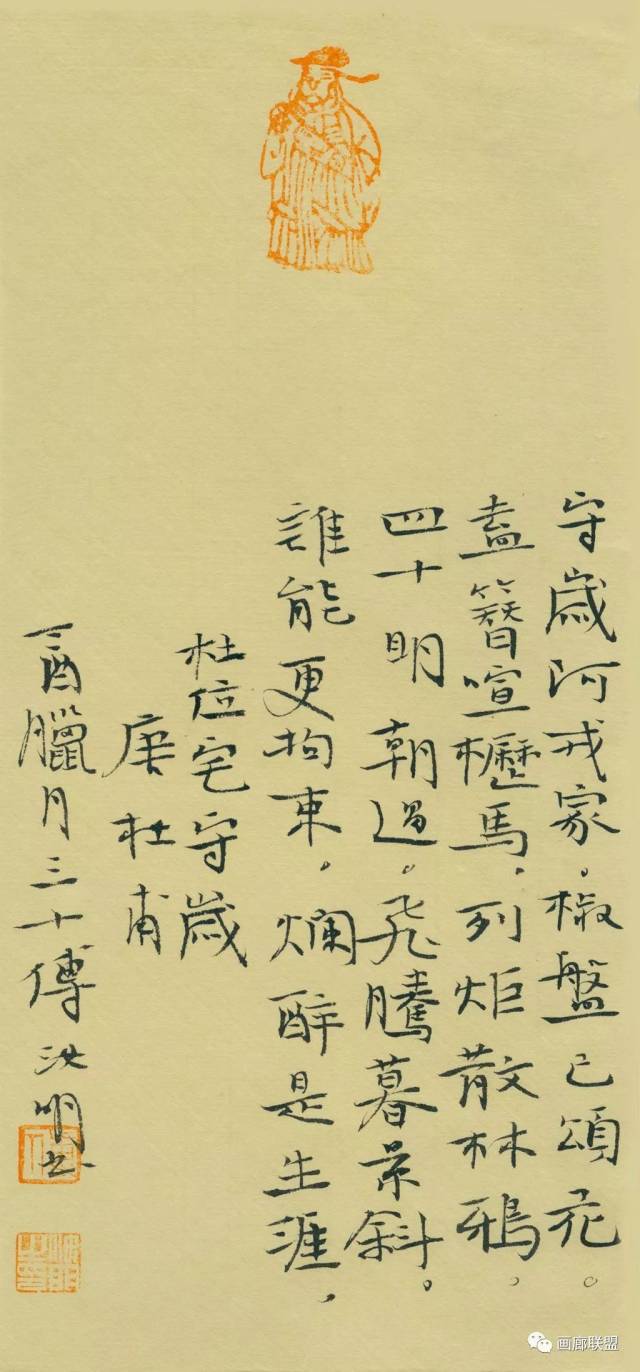 守歲阿戎家。椒盤已頌花。
盍簪喧櫪馬，列炬散林鴉，
四十明朝過。飛騰暮景斜。
誰能更拘束。爛醉是生涯，
杜位宅守歲
唐 杜甫
丁酉臘月三十傅洪明书
画廊联盟